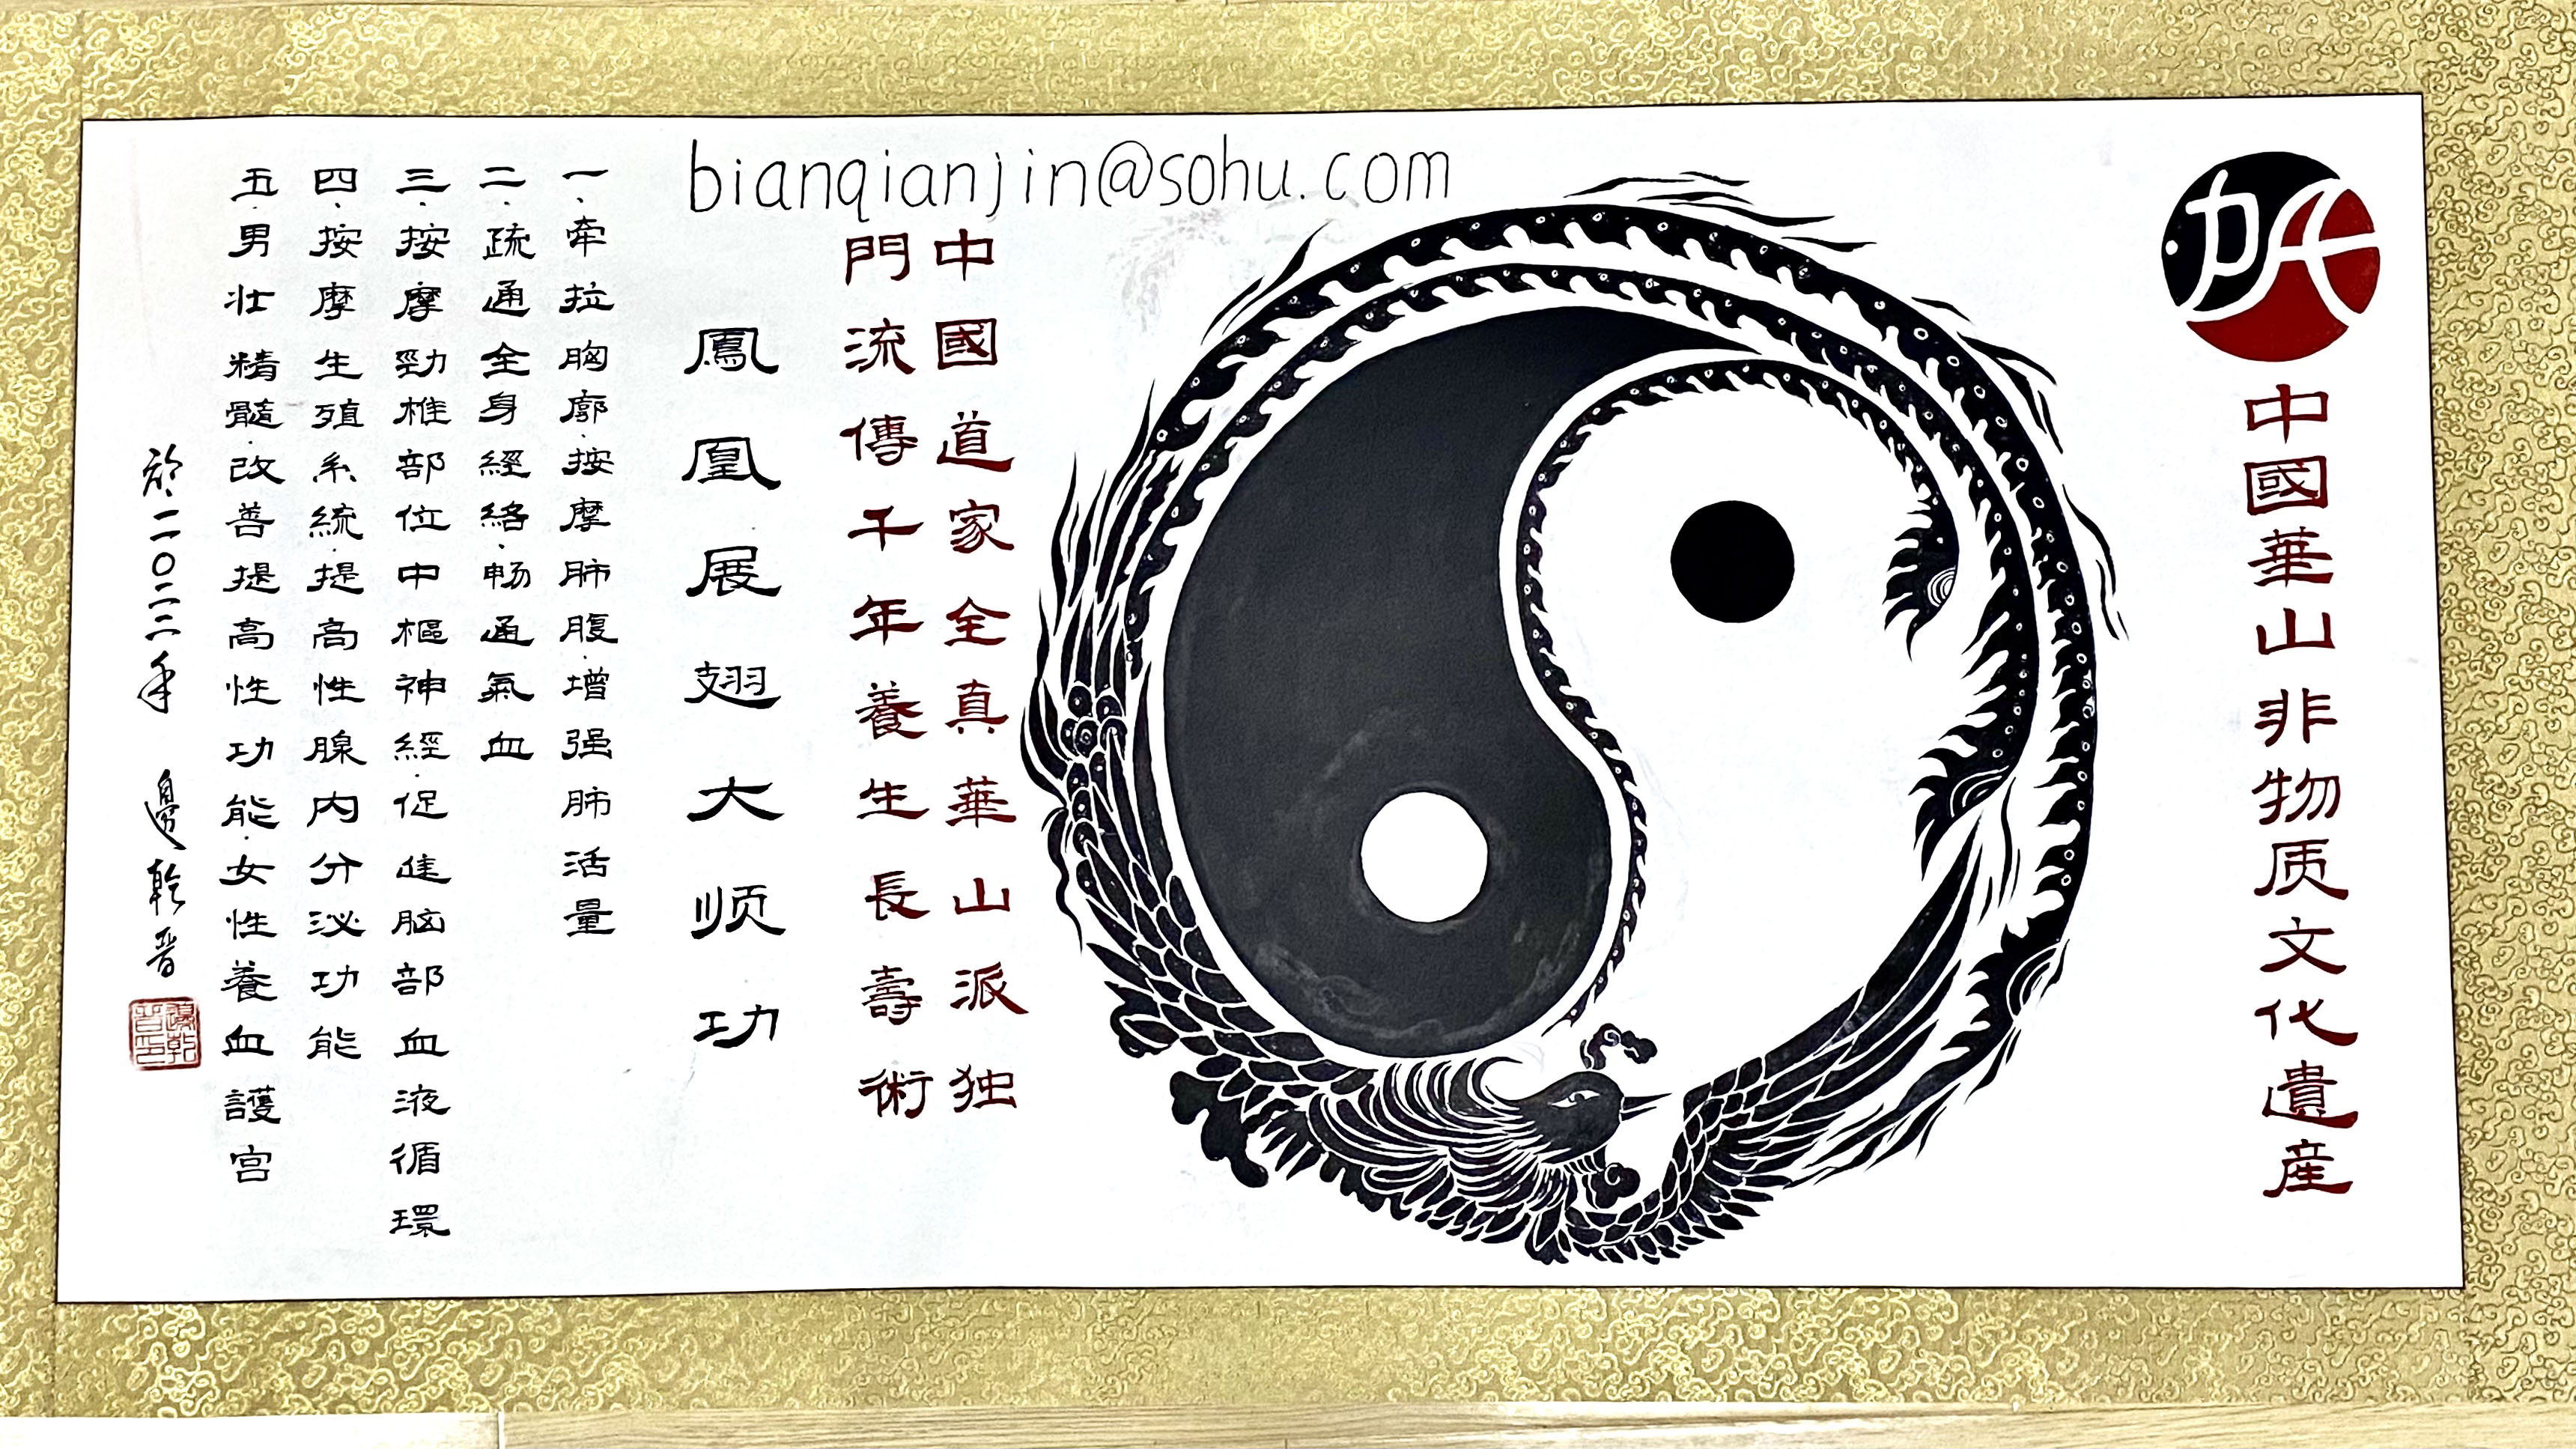 bianqianjin@sohu.com
中國華山非物质文化遺産
中國道家全真華山派独
門流傳千年養生長壽術
鳳凰展翅大顺功
一、牵拉胸廓、按摩肺腹、增强肺活量
二、疏通全身經絡、畅通氣血
三、按摩勁椎部位中樞神經、促進脑部血液循環
四、按摩生殖系統、提高性腺内分泌功能
五、男壮精髓、改善提高性功能、女性養血護宫
於二〇二二年 邊乾晋
邊乾晋印